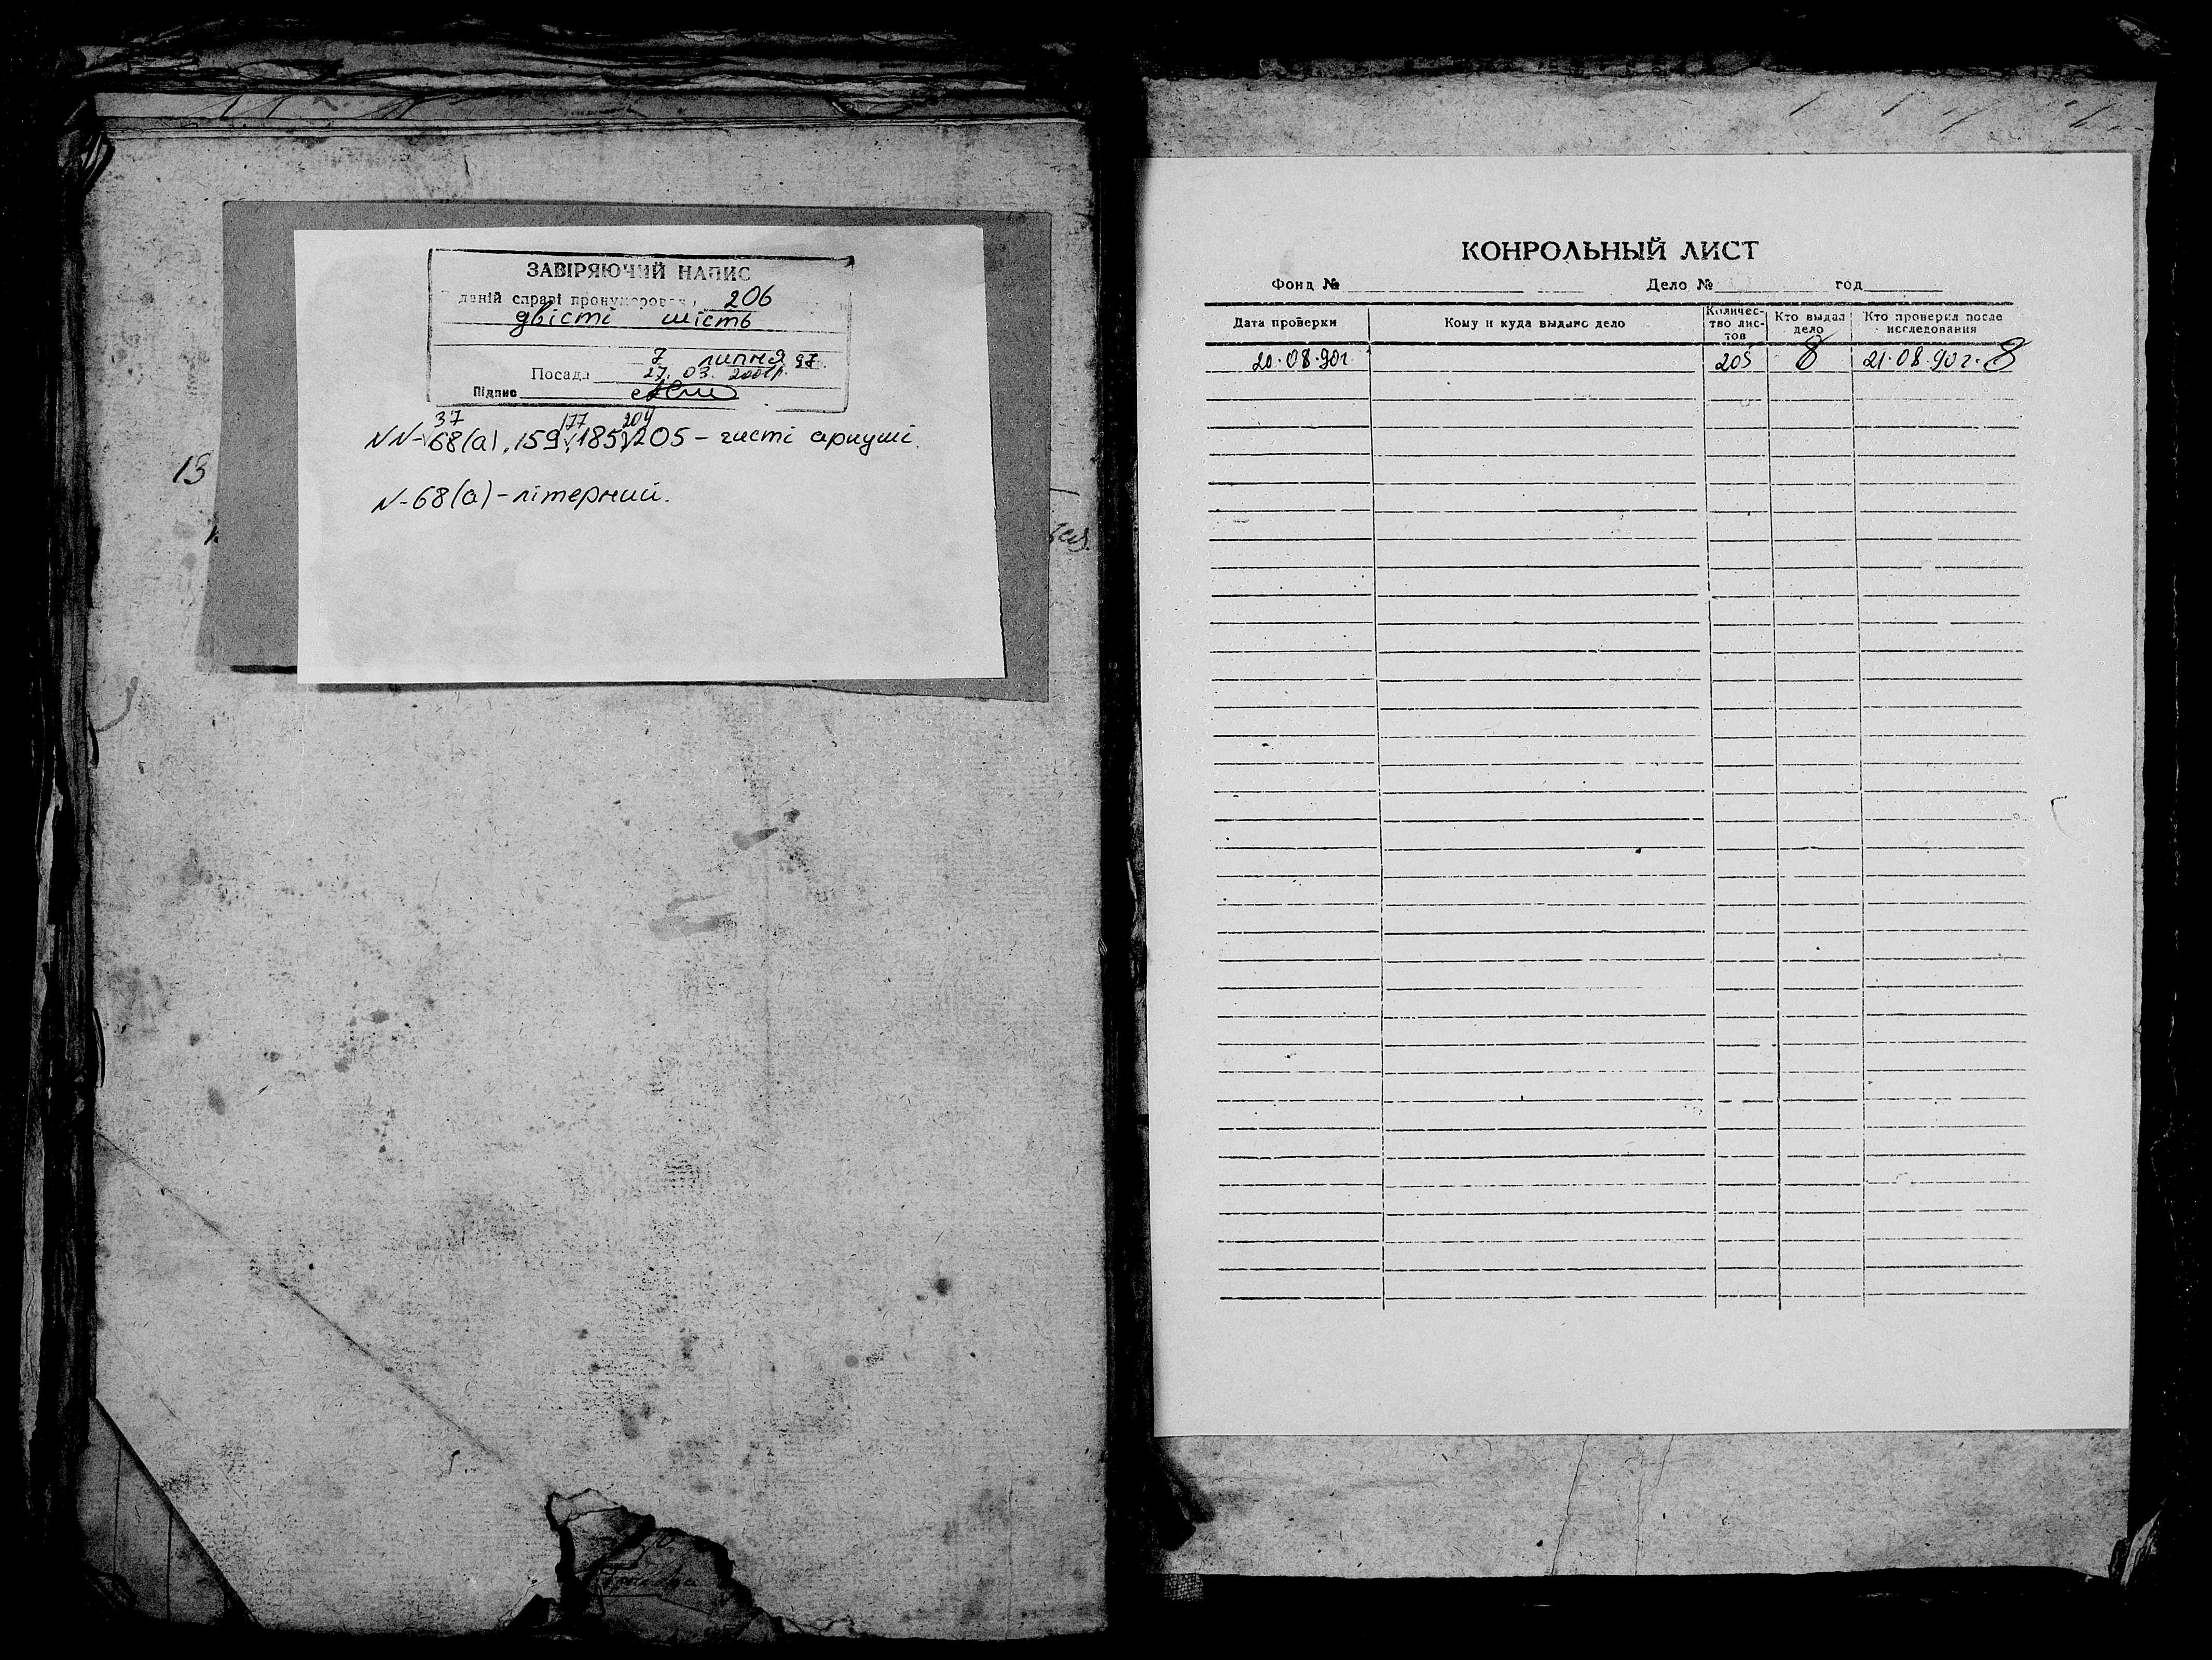 ЗАВІРЯЮЧИЙ НАПИС
даній справі пронумеровано 206
двісті шість
7 липня 97
Посада 27. 03. 2001р.
Підпис
37 177 204
NN-68(а), 159, 185, 205 – чисті аркуші.
13
N-68(а) – літерний.
КОНРОЛЬНЫЙ ЛИСТ
Фонд № Дело № год
Дата проверки Кому и куда выдано дело Количес- тво лис- тов Кто выдал дело Кто проверил после исследования
20.08.90г. 205 21.08.90г.